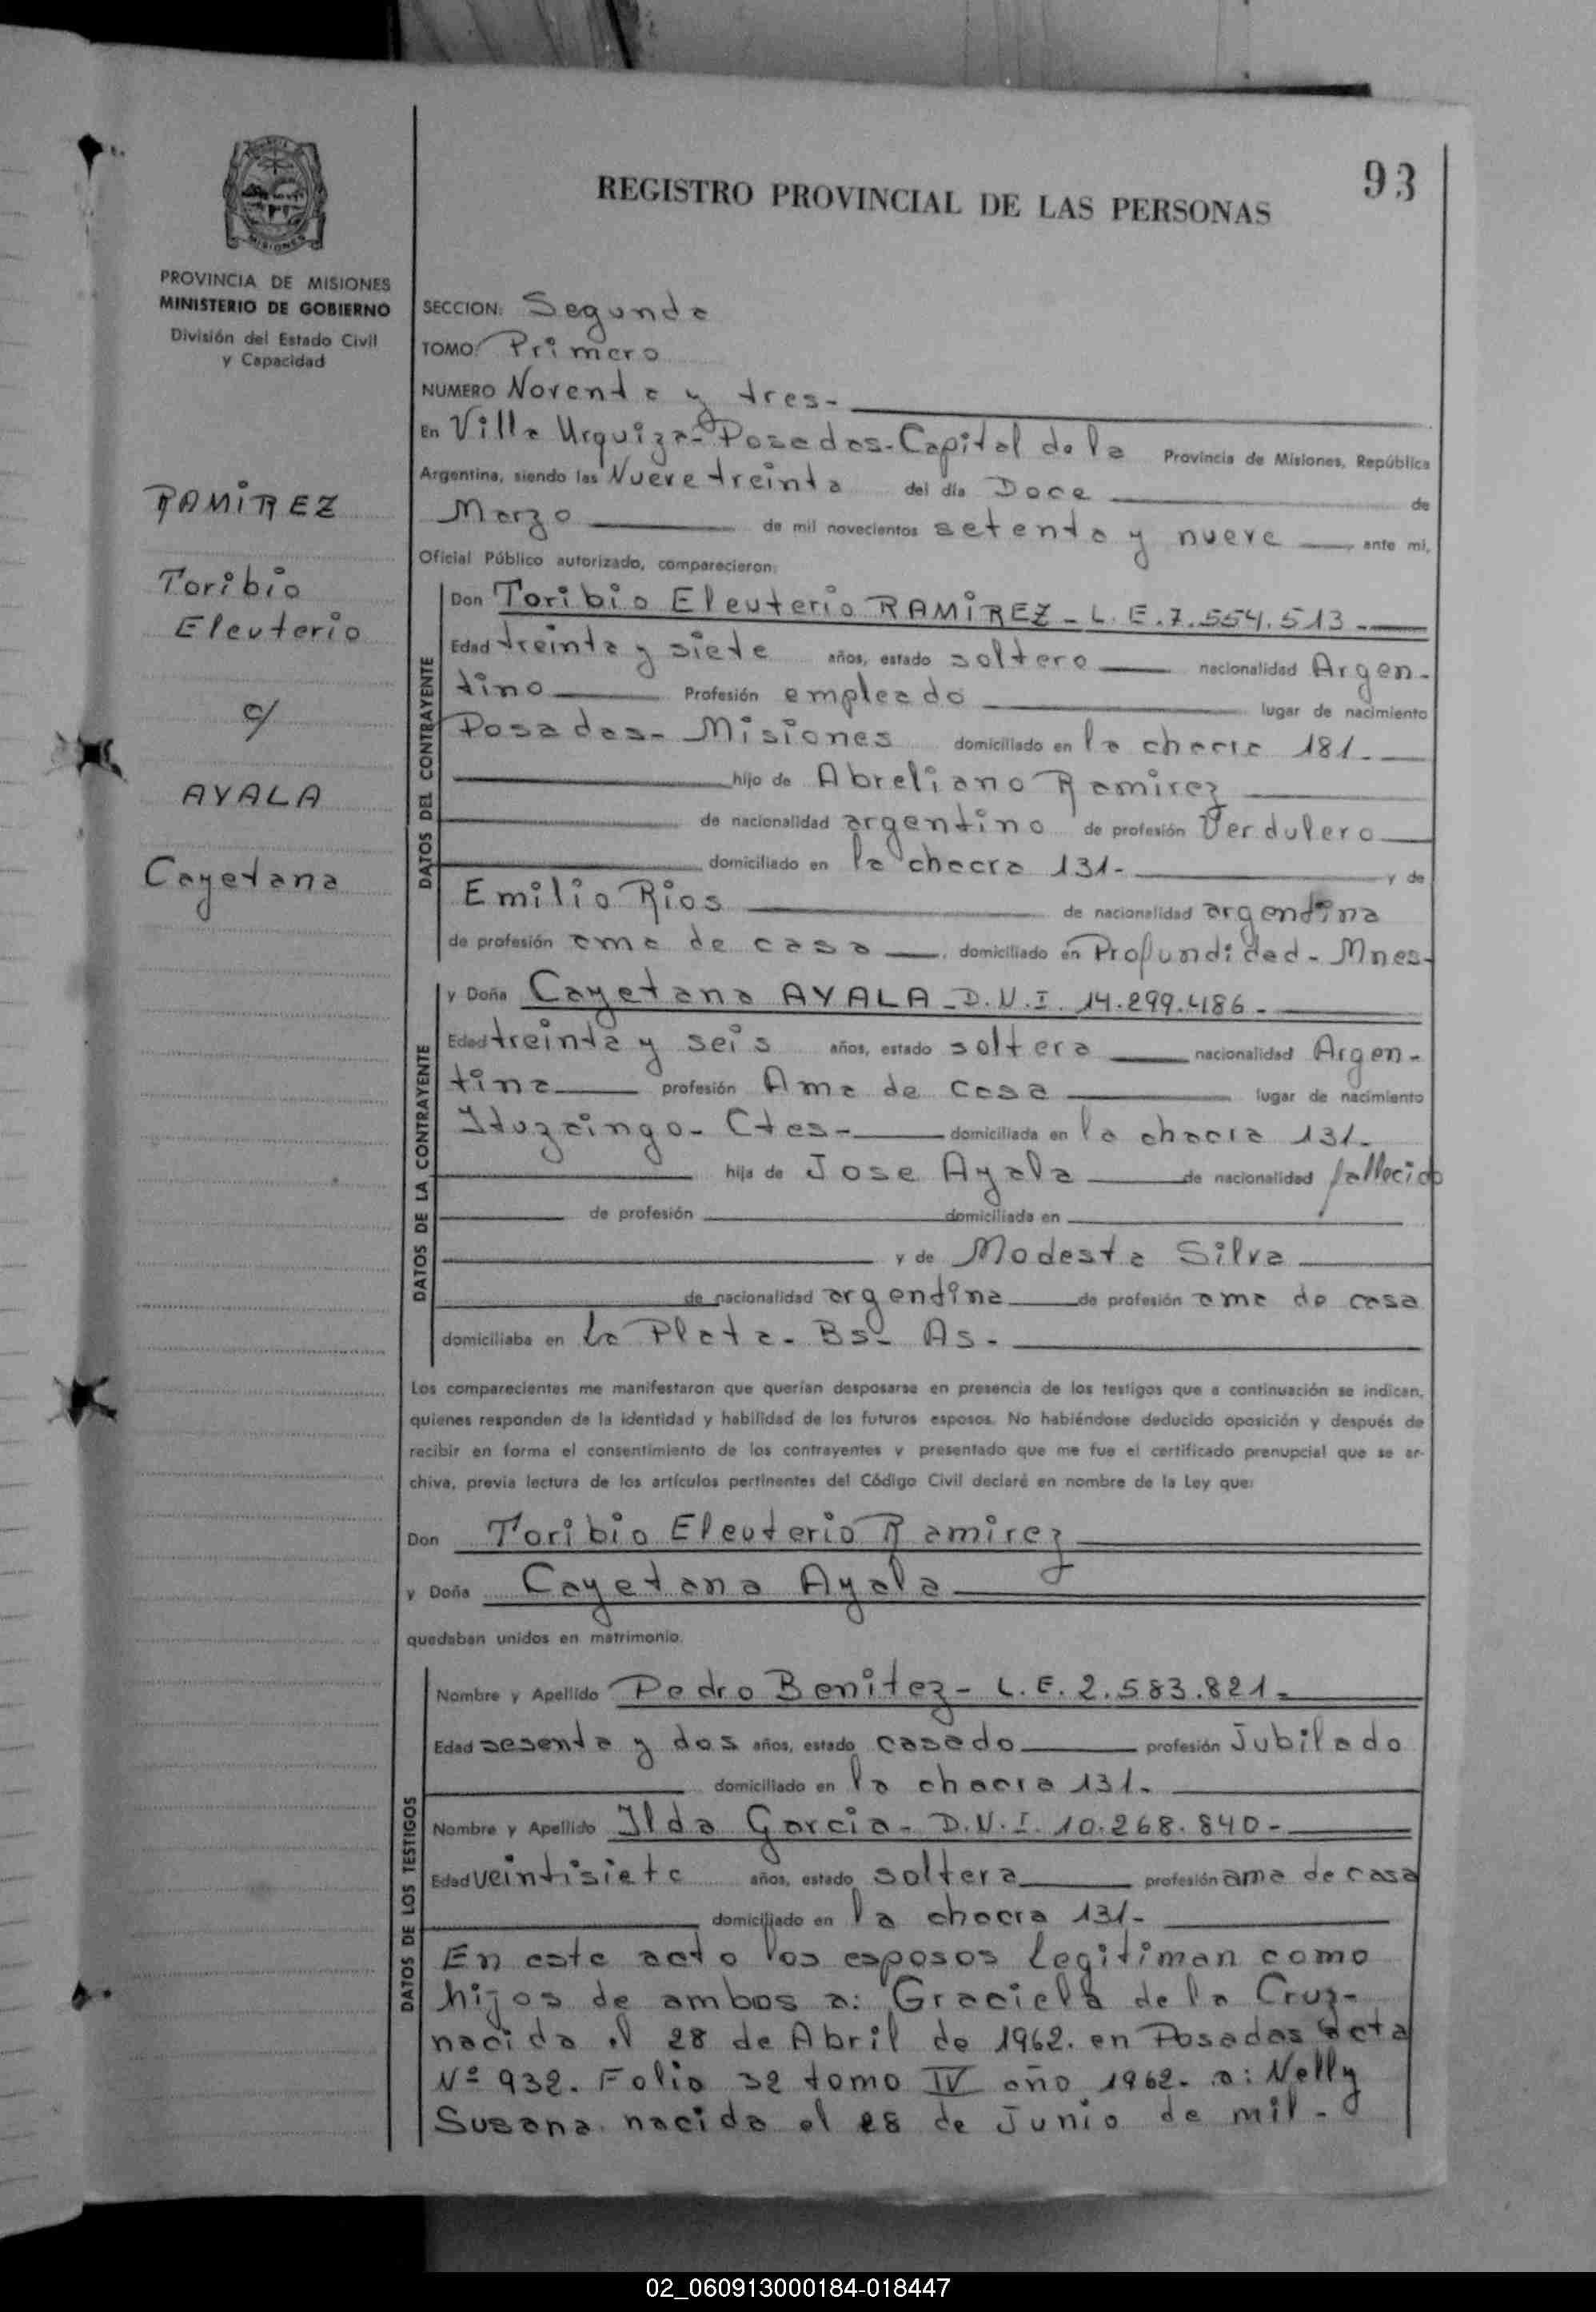 93
REGISTRO PROVINCIAL DE LAS PERSONAS
MISIONES
PROVINCIA DE MISIONES
MINISTERIO DE GOBIERNO
División del Estado Civil
y Capacidad
RAMIREZ
Toribio
Eleuterio
c/
AYALA
Cayetana
SECCION: Segunda
TOMO: Primero
NUMERO Noventa y tres-
En Villa Urquiza-Posadas-Capital de la Provincia de Misiones, República
Argentina, siendo las Nueve treinta del día Doce de
Marzo de mil novecientos setenta y nueve ante mi,
Oficial Público autorizado, comparecieron:
DATOS DEL CONTRAYENTE
Don Toribio Eleuterio RAMIREZ - L. E. 7.554.513-
Edad treinta y siete años, estado soltero nacionalidad Argen-
tino Profesión empleado lugar de nacimiento
Posadas- Misiones domiciliado en la chacra 181-
hijo de Abreliano Ramirez
de nacionalidad argentino de profesión Verdulero
domiciliado en la chacra 131- y de
Emilio Rios de nacionalidad argentina
de profesión ama de casa, domiciliado en Profundidad - Mnes-
DATOS DE LA CONTRAYENTE
y Doña Cayetana AYALA - D.N.I. 14.299.486-
Edad treinta y seis años, estado soltera nacionalidad Argen-
tina profesión Ama de casa lugar de nacimiento
Ituzaingo- Ctes- domiciliada en la chacra 131-
hija de Jose Ayala de nacionalidad fallecido
de profesión domiciliada en
y de Modesta Silva
de nacionalidad argentina de profesión ama de casa
domiciliaba en La Plata- Bs- As-
Los comparecientes me manifestaron que querían desposarse en presencia de los testigos que a continuación se indican,
quienes responden de la identidad y habilidad de los futuros esposos. No habiéndose deducido oposición y después de
recibir en forma el consentimiento de los contrayentes y presentado que me fue el certificado prenupcial que se ar-
chiva, previa lectura de los artículos pertinentes del Código Civil declaré en nombre de la Ley que:
Don Toribio Eleuterio Ramirez
y Doña Cayetana Ayala
quedaban unidos en matrimonio.
DATOS DE LOS TESTIGOS
Nombre y Apellido Pedro Benitez- L. E. 2.583.821-
Edad sesenta y dos años, estado casado profesión Jubilado
domiciliado en la chacra 131-
Nombre y Apellido Ilda Garcia- D.N.I. 10.268.840-
Edad veintisiete años, estado soltera profesión ama de casa
domiciliado en la chacra 131-
En este acto los esposos legitiman como
hijos de ambos a: Graciela de la Cruz-
nacida el 28 de Abril de 1962. en Posadas acta
Nº 932. Folio 32 tomo IV año 1962- a: Nelly
Susana nacida el 28 de Junio de mil-
02_060913000184-018447